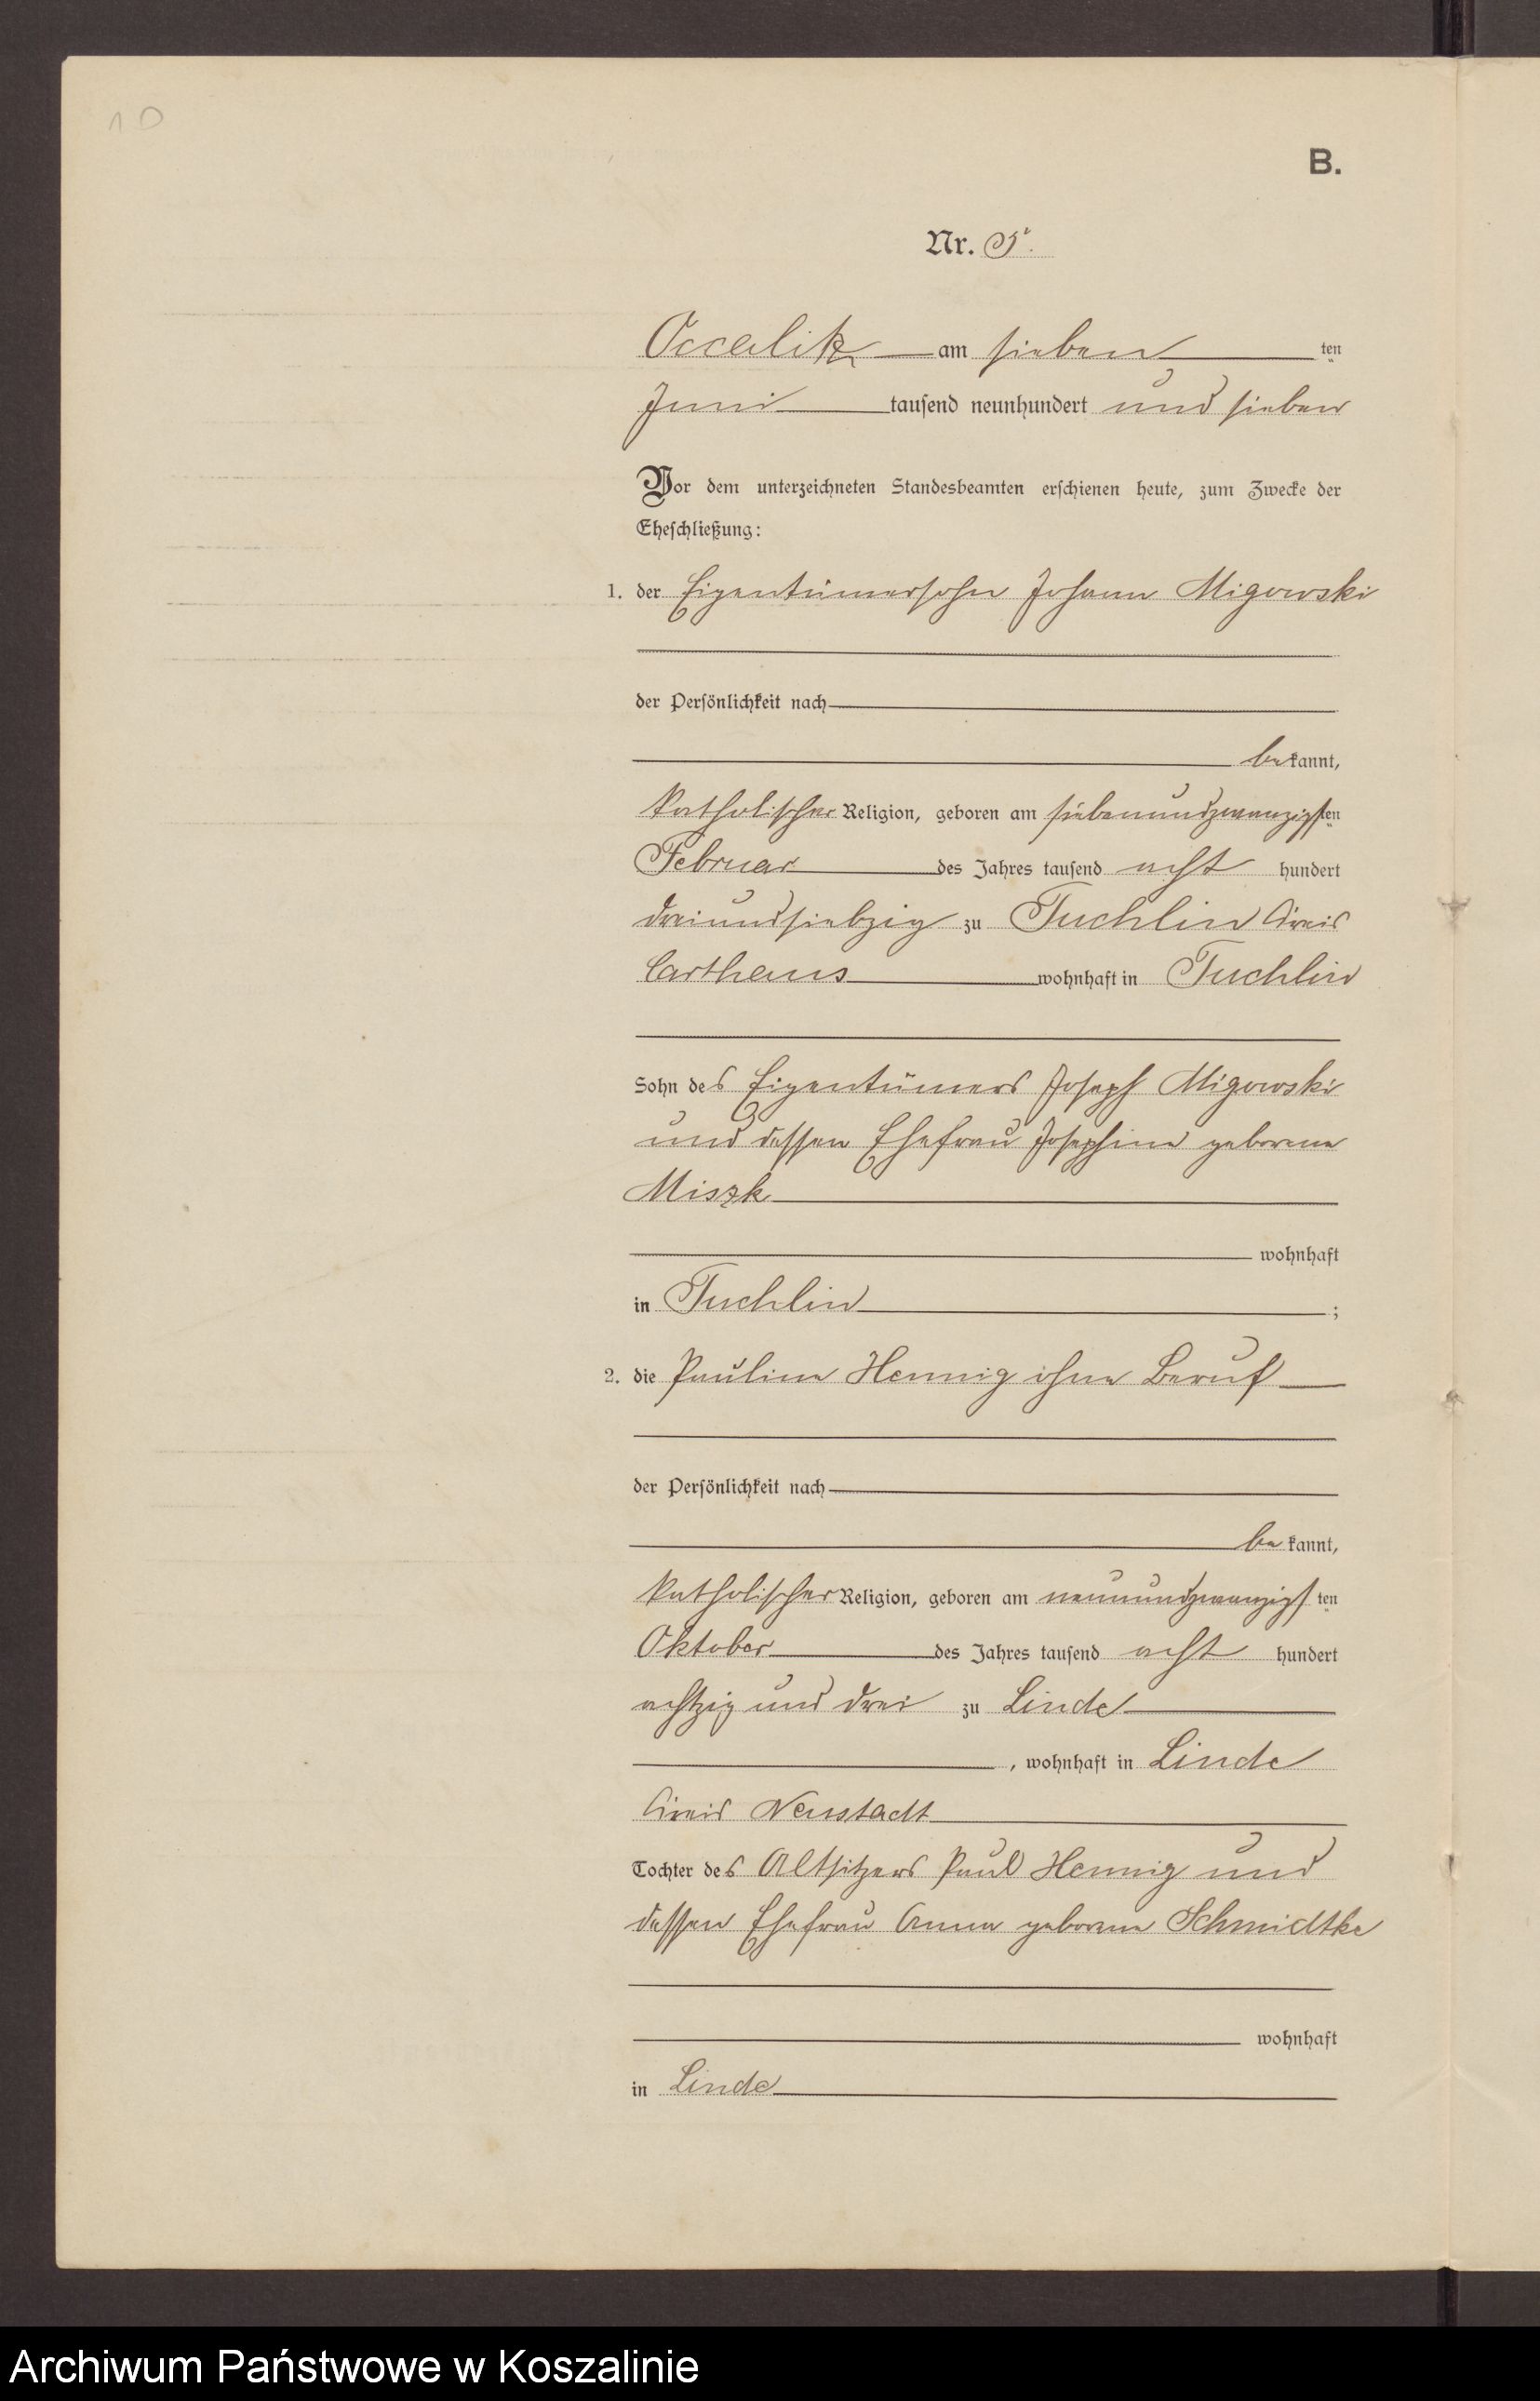 10
B.
Nr. 5.
Occalitz am sieben ten
Juni tausend neunhundert und sieben
Vor dem unterzeichneten Standesbeamten erschienen heute, zum Zwecke der
Eheschließung:
1. der Eigentümersohn Johann Migowski
der Persönlichkeit nach
be kannt,
katholischer Religion, geboren am siebenundzwanzigsten
Februar des Jahres tausend acht hundert
dreiundsiebzig zu Tuchlin Kreis
Carthaus wohnhaft in Tuchlin
Sohn des Eigentümers Joseph Migowski
und dessen Ehefrau Josephine geborene
Miszk
wohnhaft
in Tuchlin ;
2. die Pauline Hennig ohne Beruf
der Persönlichkeit nach
be kannt,
katholischer Religion, geboren am neunundzwanzigs ten
Oktober des Jahres tausend acht hundert
achtzig und drei zu Linde
, wohnhaft in Linde
Kreis Neustadt
Tochter des Altsitzers Paul Hennig und
dessen Ehefrau Anna geborene Schmidtke
wohnhaft
in Linde
Archiwum Państwowe w Koszalinie